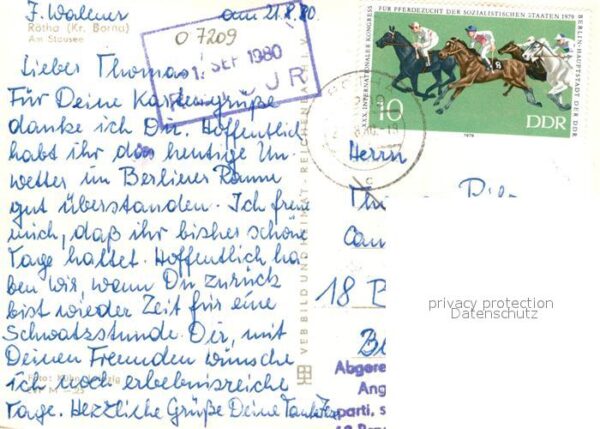 F. Wallner am 21.8.80
Rötha (Kr. Borna)
Am Stausee
07209
1. SEP 1980
Lieber Thomas
Für Deine Kartengrüße
danke ich Dir. Hoffentlich
habt ihr das heutige Un-
wetter im Berliner Raum
gut überstanden. Ich freue
mich, daß ihr bisher schöne
Tage hattet. Hoffentlich ha
ben wir, wenn Du zurück
bist wieder Zeit für eine
Schwatzstunde. Dir, mit
Deinen Freunden wünsche
ich noch erlebnisreiche
Tage. Herzliche Grüße Deine Tante
VEB BILD UND HEIMAT · REICHENBACH I. V.
XXX. INTERNATIONALER KONGRESS
FÜR PFERDEZUCHT DER SOZIALISTISCHEN STAATEN 1979
BERLIN-HAUPTSTADT DER DDR
10
DDR
1979
8
Herrn
18
privacy protection
Datenschutz
Abgere
Ang
parti, s